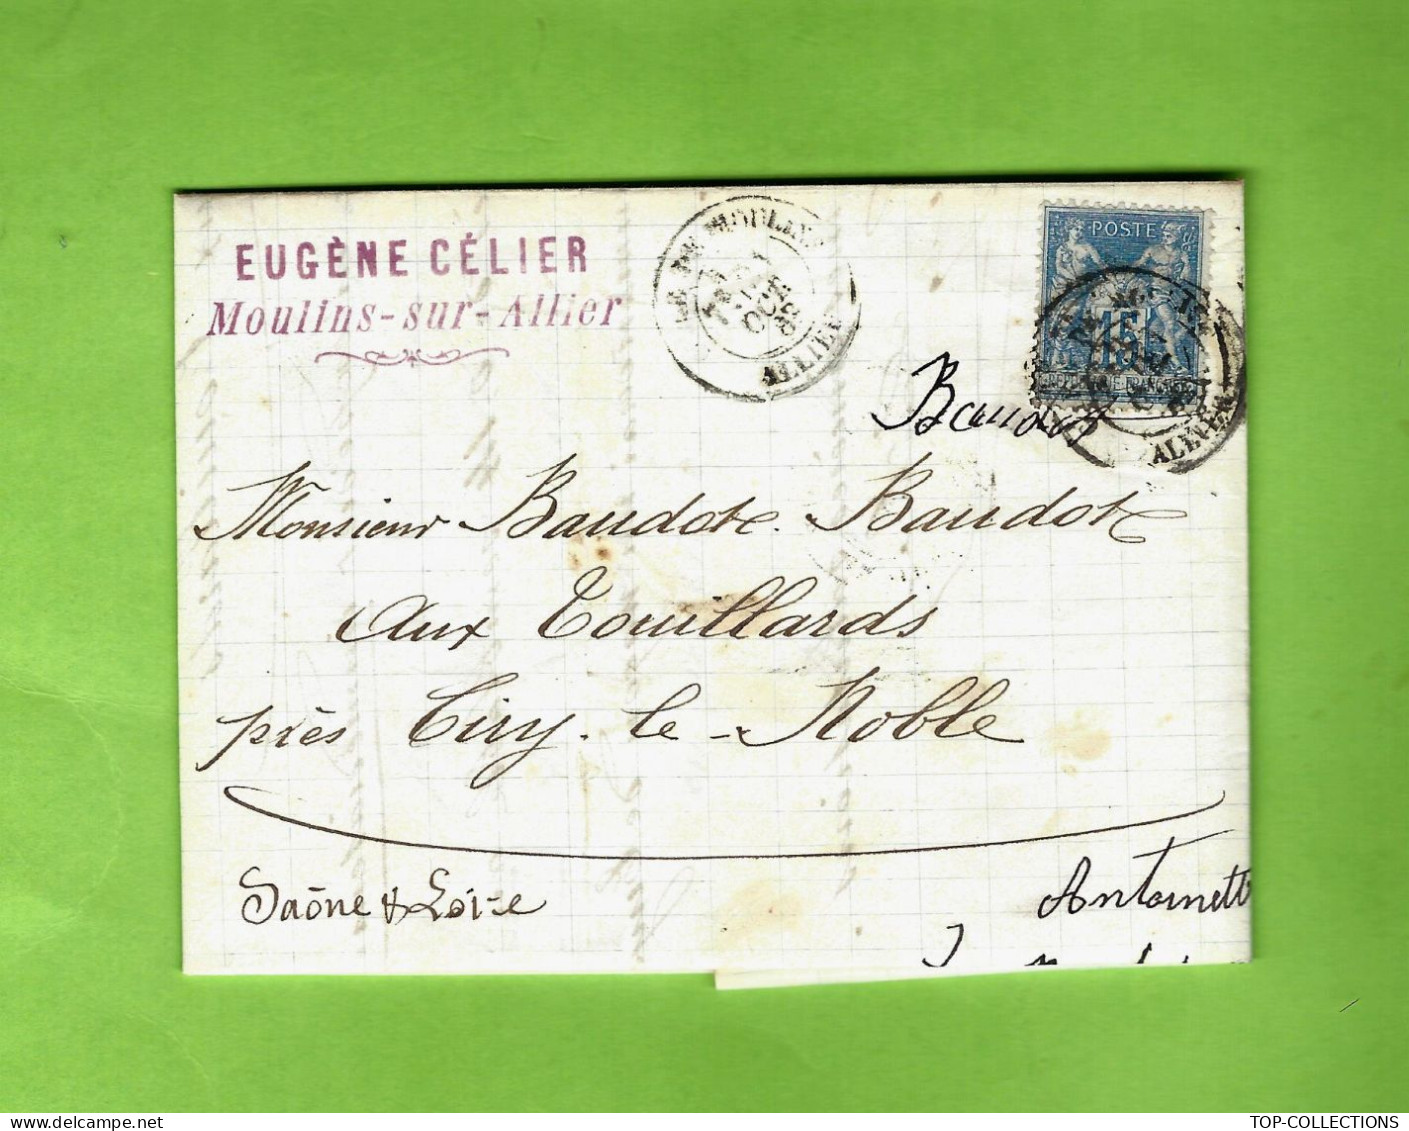 EUGÈNE CÉLIER
Moulins-sur-Allier
MOULINS
OCT
ALLIER
POSTE
15
ALLIER
Baudot
Monsieur Baudot-Baudot
aux Touillards
près Ciry-le-Noble
Saône & Loire
Antoinett
TOP-COLLECTIONS